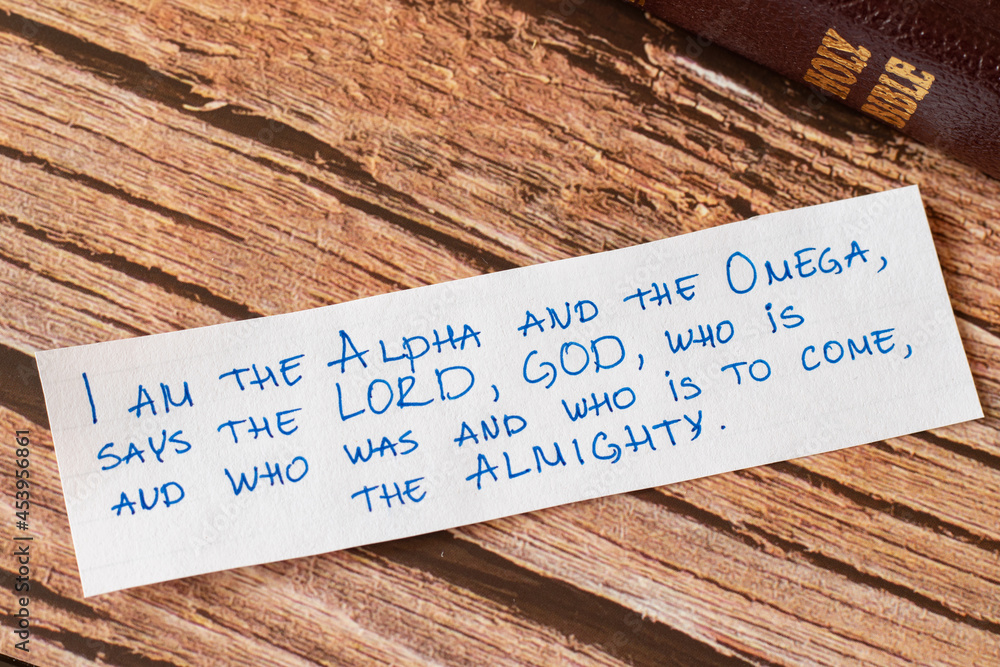 HOLY
BIBLE
I AM THE ALPHA AND THE OMEGA,
SAYS THE LORD, GOD, WHO iS
AND WHO WAS AND WHO IS TO COME,
THE ALMIGHTY.
Adobe Stock | #453956861